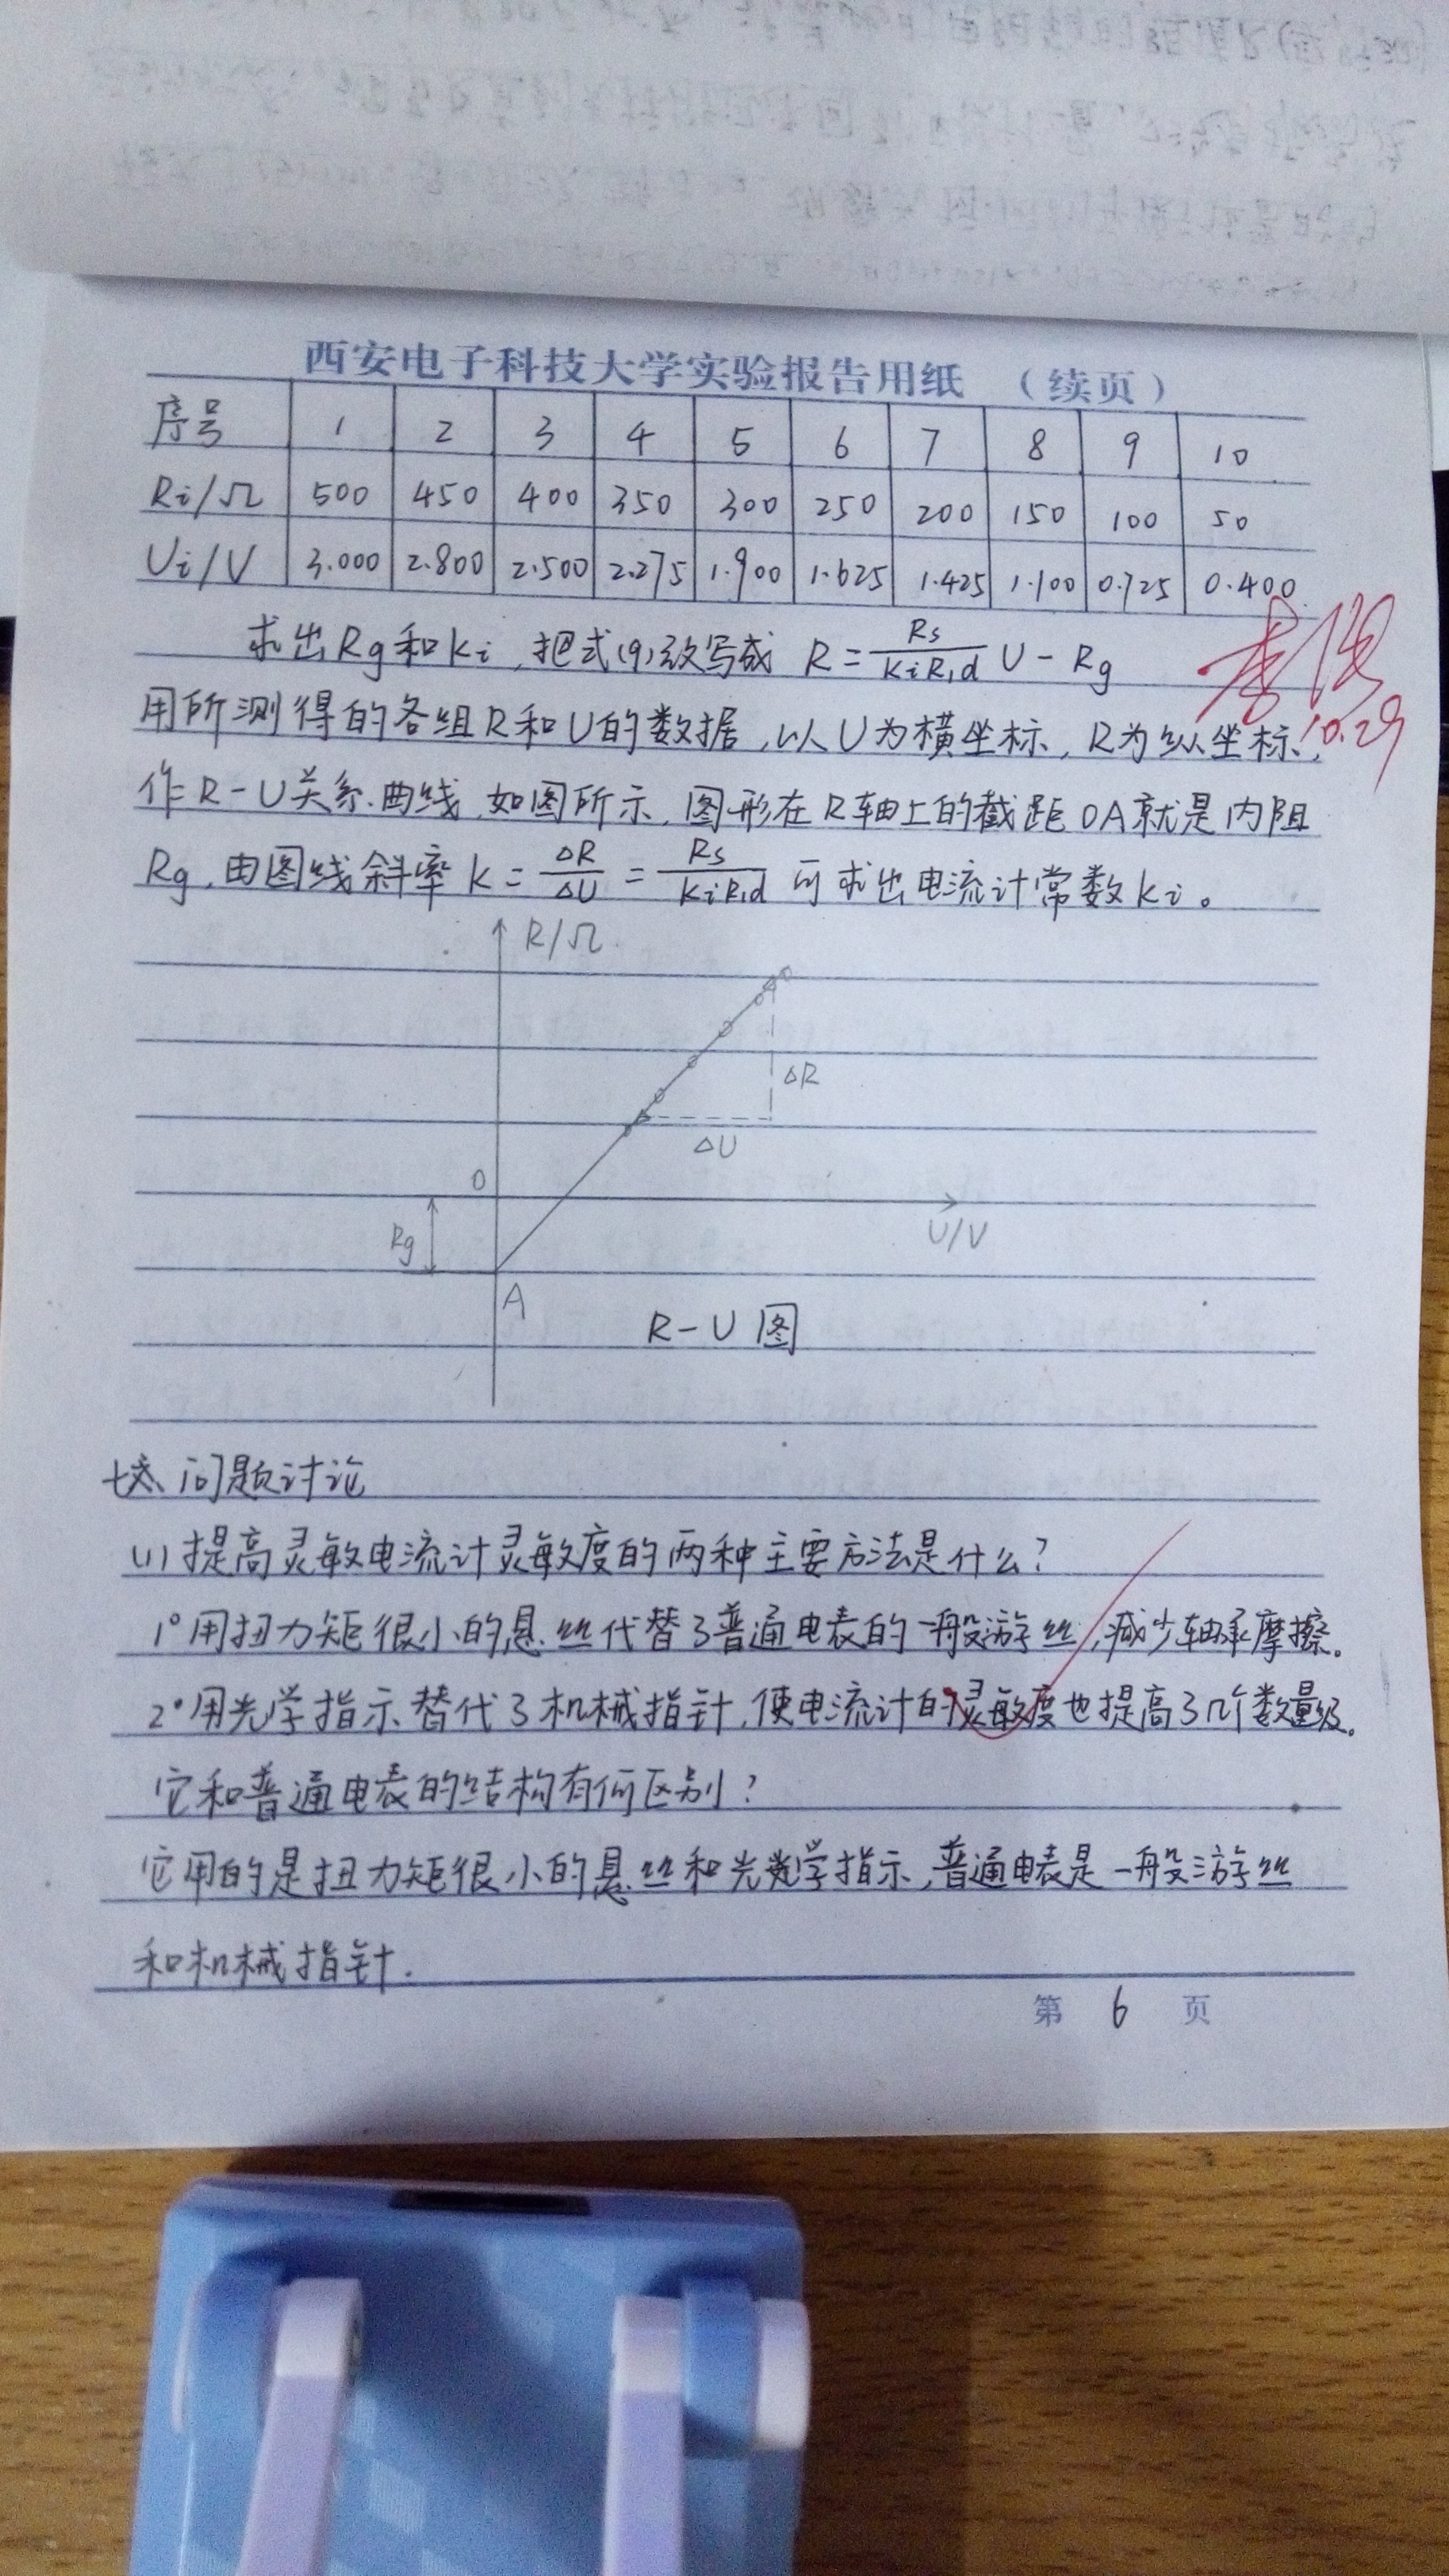 西安电子科技大学实验报告用纸 （续页）
序号 1 2 3 4 5 6 7 8 9 10
Ri/Ω 500 450 400 350 300 250 200 150 100 50
Ui/V 3.000 2.800 2.500 2.275 1.900 1.625 1.425 1.100 0.725 0.400
求出Rg和Ki，把式(9)改写成 R = Rs/(KiR1d) U - Rg
用所测得的各组R和U的数据，以U为横坐标，R为纵坐标，
10.29
作R-U关系曲线，如图所示，图形在R轴上的截距OA就是内阻
Rg，由图线斜率 K = ΔR/ΔU = Rs/(KiR1d) 可求出电流计常数Ki。
R/Ω
ΔR
ΔU
O
Rg
U/V
A
R-U 图
七、问题讨论
(1)提高灵敏电流计灵敏度的两种主要方法是什么？
1°用扭力矩很小的悬丝代替了普通电表的一般游丝，减少轴承摩擦。
2°用光学指示替代了机械指针，使电流计的灵敏度也提高了几个数量级。
它和普通电表的结构有何区别？
它用的是扭力矩很小的悬丝和光学指示，普通电表是一般游丝
和机械指针.
第 6 页